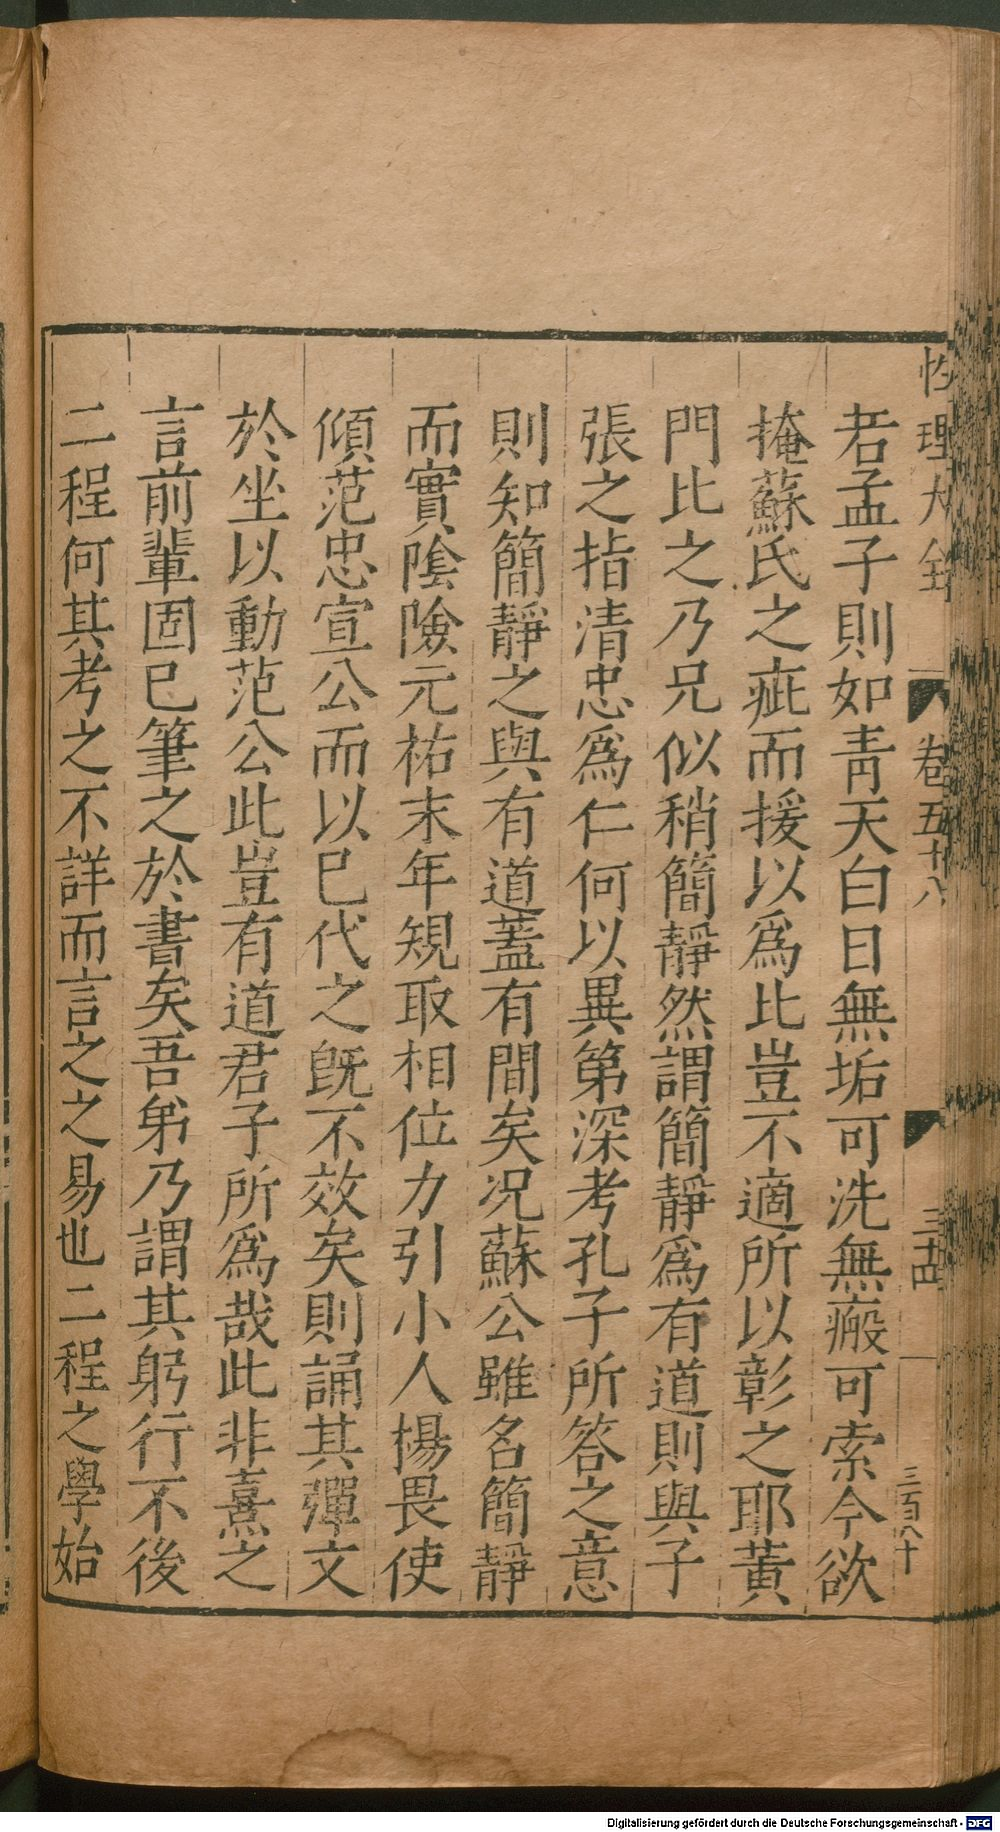 性理大全 卷五十八 三十四 三百八十
若孟子則如青天白日無垢可洗無瘢可索今欲
掩蘇氏之疵而援以為比豈不適所以彰之耶黃
門比之乃兄似稍簡靜然謂簡靜為有道則與子
張之指清忠為仁何以異第深考孔子所答之意
則知簡靜之與有道蓋有間矣况蘇公雖名簡靜
而實陰險元祐末年規取相位力引小人楊畏使
傾范忠宣公而以巳代之旣不效矣則誦其彈文
於坐以動范公此豈有道君子所為哉此非熹之
言前輩固巳筆之於書矣吾弟乃謂其躬行不後
二程何其考之不詳而言之之易也二程之學始
Digitalisierung gefördert durch die Deutsche Forschungsgemeinschaft - DFG